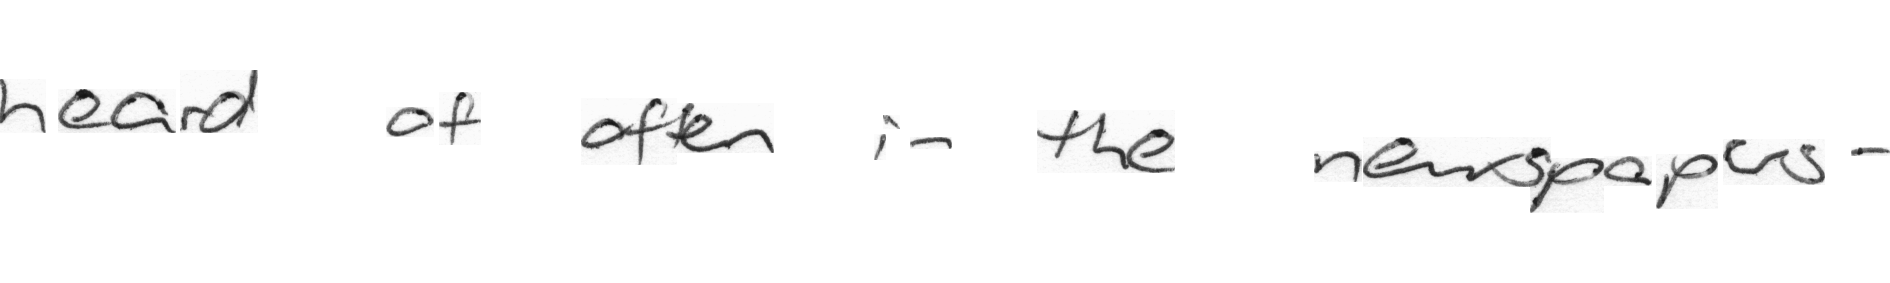 heard of often in the newspapers -